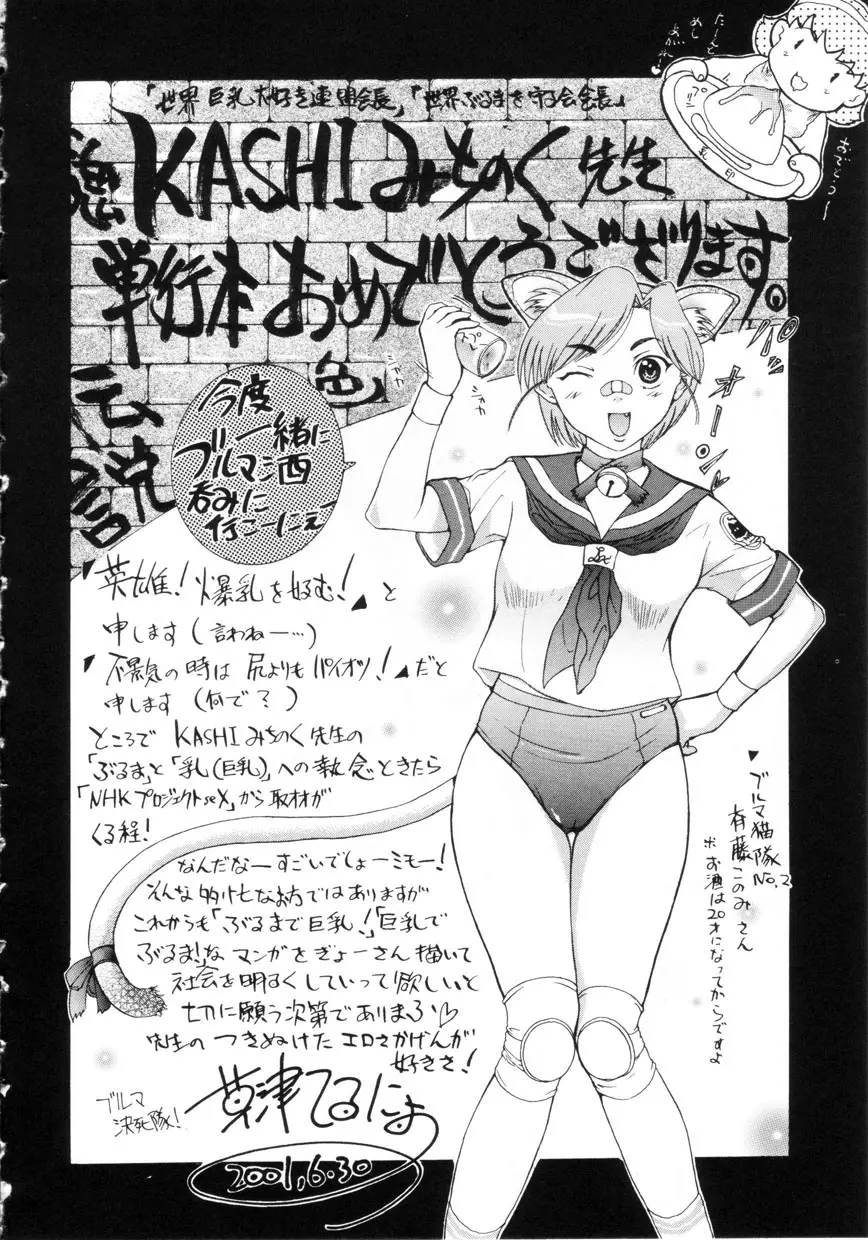 「世界巨乳大好き連盟会長」「世界ぶるまを守る会会長」
KASHIみちのく先生
単行本おめでとうございます。
伝説
色
たーんと
めし
あがれ
おめでとっ〜
乳
印
シャカ
シャカ
オーーン
今度
一緒に
ブルマ酒
呑みに
行こーにぇー
「英雄!爆乳を好む!」と
申します(言わねー…)
「不景気の時は尻よりもパイオツ!」だと
申します(何で?)
ところでKASHIみちのく先生の
「ぶるま」と「乳(巨乳)」への執念ときたら
「NHKプロジェクトseX」から取材が
くる程!
なんだなーすごいでしょーミモー!
そんな多忙なお方ではありますが
これからも「ぶるまで巨乳!」「巨乳で
ぶるま!」なマンガをぎょーさん描いて
社会を明るくしていって欲しいと
切に願う次第でありまふ♡
先生のつきぬけたエロさかげんが
好きさ!
ブルマ
決死隊!
草津てるにょ
2001,6.30
ブルマ猫隊
No.2
斉藤このみさん
※お酒は20才になってからですよ